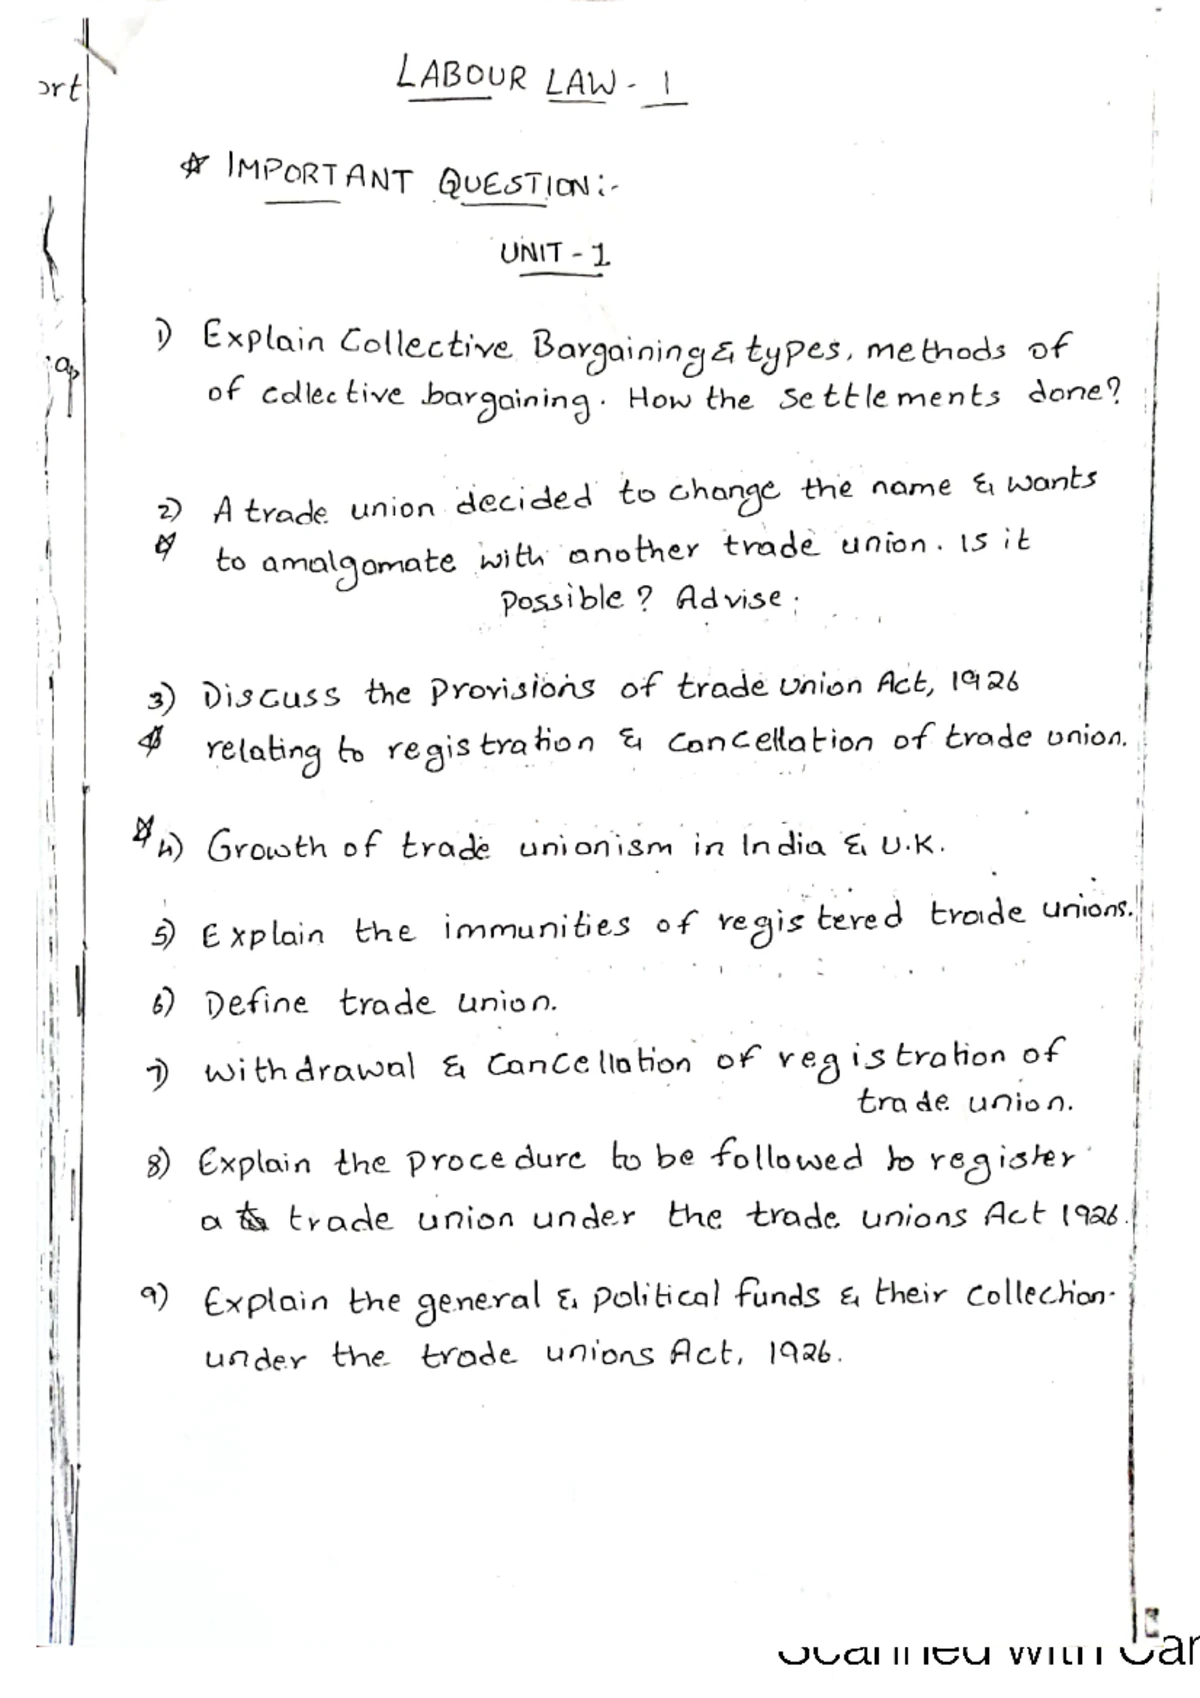 LABOUR LAW - 1
ort
☆ IMPORTANT QUESTION:-
UNIT - 1
1) Explain Collective Bargaining & types, methods of
of collective bargaining. How the settlements done?
ap
2) A trade union decided to change the name & wants
☆ to amalgomate with another trade union. Is it
possible? Advise.
3) Discuss the provisions of trade union Act, 1926
☆ relating to registration & cancellation of trade union.
☆ 4) Growth of trade unionism in India & U.K.
5) Explain the immunities of registered trade unions.
6) Define trade union.
7) withdrawal & cancellation of registration of
trade union.
8) Explain the procedure to be followed to register
a trade union under the trade unions Act 1926.
9) Explain the general & political funds & their collection.
under the trade unions Act, 1926.
Scanned with Car